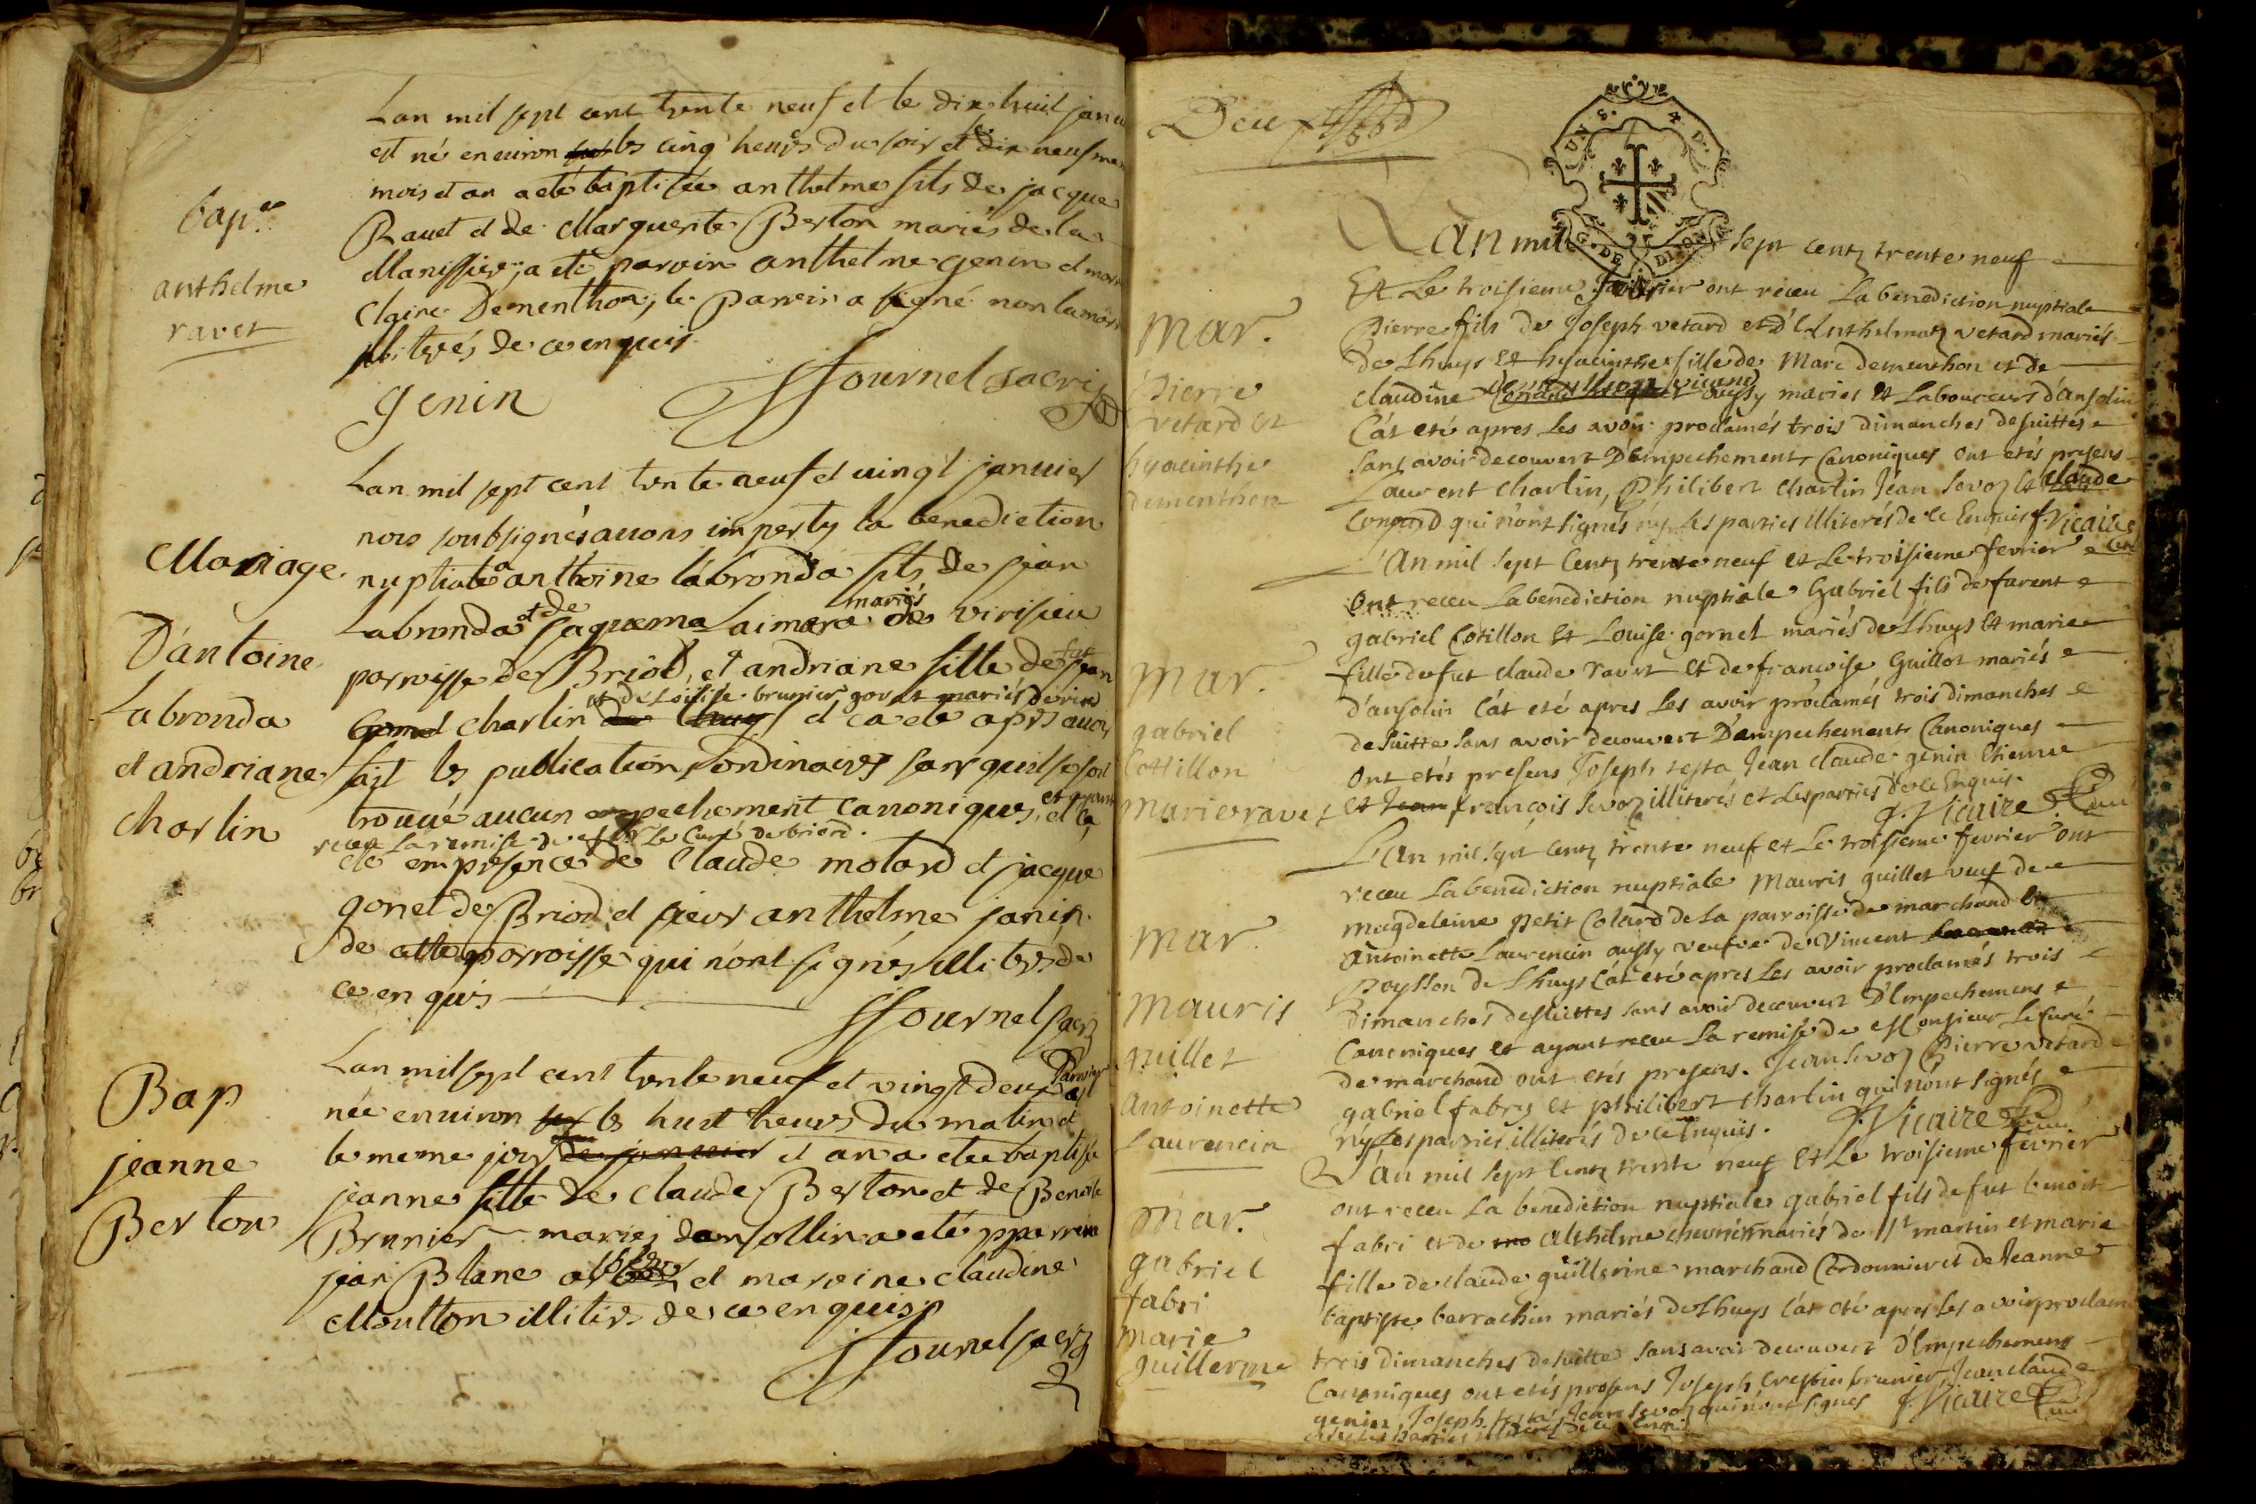 Lan mil sept cent trente neuf et le dix huit janu
est né enuiron les cinq heures du soir et dix neuf me
mois et an a eté baptisée anthelme fils de jacque
Rauet et de Marguerite Berton mariés de la
Manissiere, a eté parain anthelme genin et mar
Claire Dementhon, le parein a signé non la mar
illiterés de ce enquis
genin fournel sacri
bap.
anthelme
ravet
Lan mil sept cent trente neuf et uingt januier
nous soubsignés auons imperty la benediction
nuptiale a anthoine labronda fils de jean
Labronda et de jaquema Laimara mariés de virisieu
parroisse de Briord, et andriane fille de fut jean
charlin et de Loüise brunier gonet mariés
et ca eté apres auoir
fait les publication ordinaires sans quil se soit
trouué aucun empechement canonique, et ayant et ça
receu la remise de Mr Le Curé de briord.
eté en presence de Claude molard et jacque
gonet de Briord et sieur anthelme janin
de cette parroisse qui n'ont signés illiterés de
ce enquis
fournel sacri
Mariage
D'antoine
Labronda
et andriane
charlin
Lan mil sept cent trente neuf et vingt deux Januier est
née enuiron les huit heures du matin et
le meme jour de januier et an a eteé baptisé
jeanne fille de claude Berton et de Benoite
Brunier mariez dansollin a eté parrein
jean Blanc et maraine claudine
Moulton illitere de ce enquis
fournel sacri
Bap
jeanne
Berton
Deux
G. DE DIJON
Lan mil sept centz trente neuf
Et Le troisieme fevrier ont receu La benediction nuptiale
Pierre fils de Joseph vetard et d'Anthelmaz vetard mariés
de Lhuys et hyacinthe fille de Marc dementhon et de
claudine aussy mariés et Laboureurs d'ansolin
Cát eté apres Les avoir proclamés trois dimanches desuittes
sans avoir decouvert D'empechements Canoniques ont etés presens
Laurent charlin, Philibert charlin Jean Sevoz et claude
Conguid qui n'ont signés ny Les parties illiterés de ce Enquis f. Vicaire
Mar.
Pierre
vetard et
hyacinthe
dementhon
L'an mil sept centz trente neuf et Le troisieme fevrier
Ont receu La benediction nuptiale Gabriel fils de
gabriel Cotillon et Louise gornet mariés de Lhuys et marie
fille de fut claude ravet et de francoise Guillot mariés
d'ansolin Cát eté apres Les avoir proclamés trois dimanches
de suitte sans avoir decouvert D'empechements Canoniques
Ont etés presens Joseph testa Jean claude genin Etienne
et francois Sevoz illiterés et Les parties de ce Enquis.
f. Vicaire
Mar.
gabriel
Cottillon
marie ravet
L'an mil sept centz trente neuf et Le troisieme fevrier ont
receu La benediction nuptiale Mauris guillet veuf de
magdeleine petit Colard de La parroisse de marchand et
Antoinette Laurencin aussy veufve de Vincent
Poysson de Lhuys Cát eté apres Les avoir proclamés trois
dimanches desuittes sans avoir decouvert D'Empechemens
Canoniques et ayant receu La remise de Monsieur Le Curé
de marchand ont etés presens. Jean Sevoz Pierre vetard
gabriel fabry et philibert charlin qui n'ont signés
ny Les parties illiterés de ce Enquis. f. Vicaire
Mar.
Mauris
guillet
antoinette
Laurencin
L'an mil sept Centz trente neuf et Le troisieme fevrier
ont receu La benediction nuptiale gabriel fils de fut benoit
fabri et de Althelme chevrier mariés de St martin et marie
fille de claude guillerme marchand Cordonnier et de Jeanne
baptiste barrachin mariés de Lhuys Cát eté apres Les avoir proclam
trois dimanches desuitte sans avoir decouvert D'Empechements
Canoniques ont etés presens Joseph Crestin brunier, Jean claude
genin, Joseph testa, Jean Sevoz qui n'ont signés f. Vicaire
Mar.
gabriel
fabri
Marie
guillerme